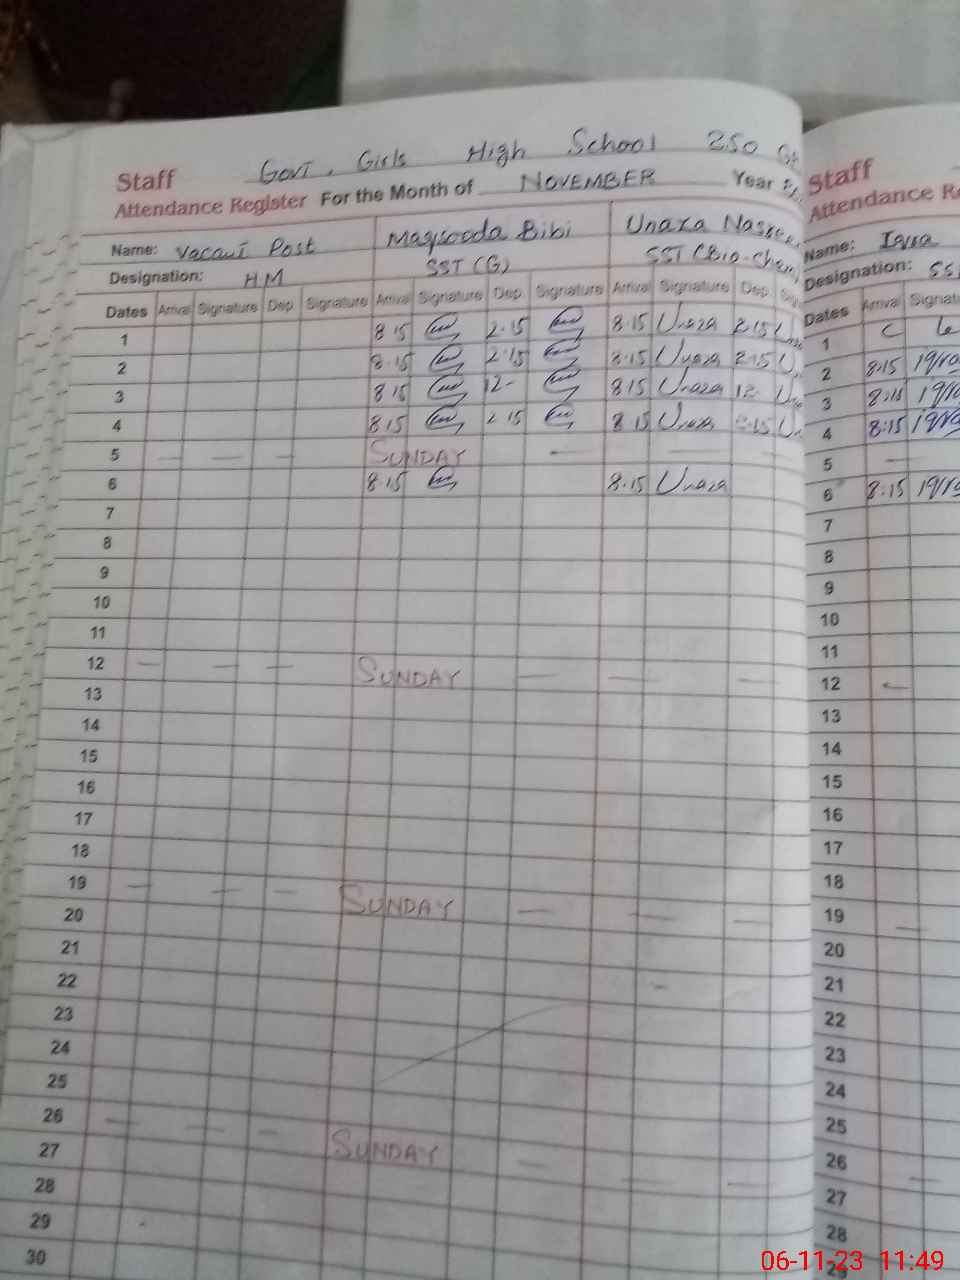 Staff Govt. Girls High School 250
Attendance Register For the Month of NOVEMBER Year
Name: Vacant Post Maqsooda Bibi Unaza
Designation: HM SST (G) SST (Bio-Chem)
Dates Arrival Signature Dep. Signature Arrival Signature Dep. Signature Arrival Signature Dep.
1 8.15 2.15 8.15 Unaza 2.15
2 8.15 2.15 8.15 Unaza 2.15
3 8.15 12- 8.15 Unaza 12-
4 8.15 2.15 8.15 Unaza 2.15
5 — — — SUNDAY — — —
6 8.15 8.15 Unaza
7
8
9
10
11
12 — — — SUNDAY — — —
13
14
15
16
17
18
19 — — — SUNDAY — — —
20
21
22
23
24
25
26 — — — SUNDAY — — —
27
28
29
30
Staff
Attendance
Name: Iqra
Designation: SS
Dates Arrival
1 C
2 8:15 Iqra
3 8:15 Iqra
4 8:15 Iqra
5 —
6 8:15 Iqra
7
8
9
10
11
12 —
13
14
15
16
17
18
19 —
20
21
22
23
24
25
26 —
27
28
29
06-11-23 11:49